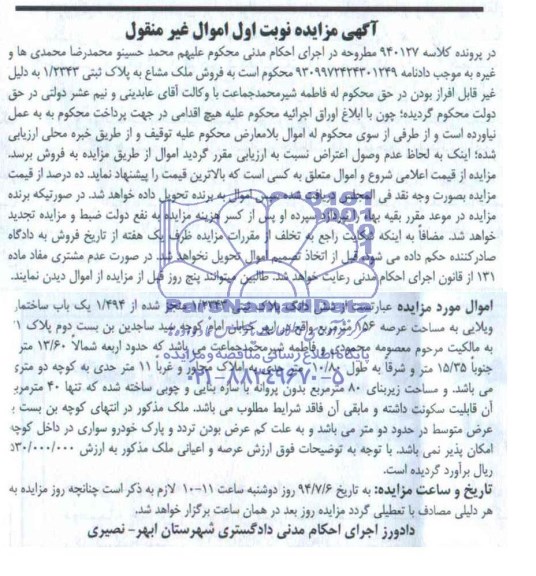 آگهی مزایده نوبت اول اموال غیر منقول
در پرونده کلاسه ۹۴۰۱۲۷ مطروحه در اجرای احکام مدنی محکوم علیهم محمد حسینو محمدرضا محمدی ها و
غیره به موجب دادنامه ۹۳۰۹۹۷۲۴۲۴۳۰۱۲۴۹ محکوم است به فروش ملک مشاع به پلاک ثبتی ۱/۲۳۴۳ به دلیل
غیر قابل افراز بودن در حق محکوم له فاطمه شیرمحمدجماعت با وکالت آقای عابدینی و نیم عشر دولتی در حق
دولت محکوم گردیده؛ چون با ابلاغ اوراق اجرائیه محکوم علیه هیچ اقدامی در جهت پرداخت محکوم به به عمل
نیاورده است و از طرفی از سوی محکوم له اموال بلامعارض محکوم علیه توقیف و از طریق خبره محلی ارزیابی
شده؛ اینک به لحاظ عدم وصول اعتراض نسبت به ارزیابی مقرر گردید اموال از طریق مزایده به فروش برسد.
مزایده از قیمت اعلامی شروع و اموال متعلق به کسی است که بالاترین قیمت را پیشنهاد نماید. ده درصد از قیمت
مزایده بصورت وجه نقد فی المجلس دریافت شده سپس اموال به برنده تحویل داده خواهد شد. در صورتیکه برنده
مزایده در موعد مقرر بقیه بهاء را نپردازد سپرده او پس از کسر هزینه مزایده به نفع دولت ضبط و مزایده تجدید
خواهد شد. مضافاً به اینکه شکایت راجع به تخلف از مقررات مزایده ظرف یک هفته از تاریخ فروش به دادگاه
صادرکننده حکم داده می شود، قبل از اتخاذ تصمیم اموال تحویل نخواهد شد. در صورت عدم مشتری مفاد ماده
۱۳۱ از قانون اجرای احکام مدنی رعایت خواهد شد. طالبین میتوانند پنج روز قبل از مزایده از اموال دیدن نمایند.
اموال مورد مزایده عبارتست از شش دانگ پلاک ثبتی ۱/۲۳۴۳ مجزی شده از ۱/۴۹۴ یک باب ساختمان
ویلایی به مساحت عرصه ۱۵۶ مترمربع واقع در ابهر خیابان امام کوچه سید ساجدین بن بست دوم پلاک ۱
به مالکیت مرحوم معصومه محمودی و فاطمه شیرمحمدجماعت می باشد که حدود اربعه شمالاً ۱۳/۶۰ متر
جنوباً ۱۵/۳۵ متر و شرقاً به طول ۱۰/۸۰ متر هر سه به املاک مجاور و غرباً ۱۱ متر حدی به کوچه دو متری
می باشد. و مساحت زیربنای ۸۰ مترمربع بدون پروانه با سازه بنایی و چوبی ساخته شده که تنها ۴۰ مترمربع
آن قابلیت سکونت داشته و مابقی آن فاقد شرایط مطلوب می باشد. ملک مذکور در انتهای کوچه بن بست با
عرض متوسط در حدود دو متر می باشد و به علت کم عرض بودن تردد و پارک خودرو سواری در داخل کوچه
امکان پذیر نمی باشد. با توجه به توضیحات فوق ارزش عرصه و اعیانی ملک مذکور به ارزش ۳۰/۰۰۰/۰۰۰
ریال برآورد گردیده است.
تاریخ و ساعت مزایده: به تاریخ ۹۴/۷/۶ روز دوشنبه ساعت ۱۱-۱۰ لازم به ذکر است چنانچه روز مزایده به
هر دلیلی مصادف با تعطیلی گردد مزایده روز بعد در همان ساعت برگزار خواهد شد.
دادورز اجرای احکام مدنی دادگستری شهرستان ابهر- نصیری
ParsNamadData
پایگاه اطلاع رسانی مناقصه و مزایده
۰۲۱-۸۸۳۴۹۶۷۰-۵